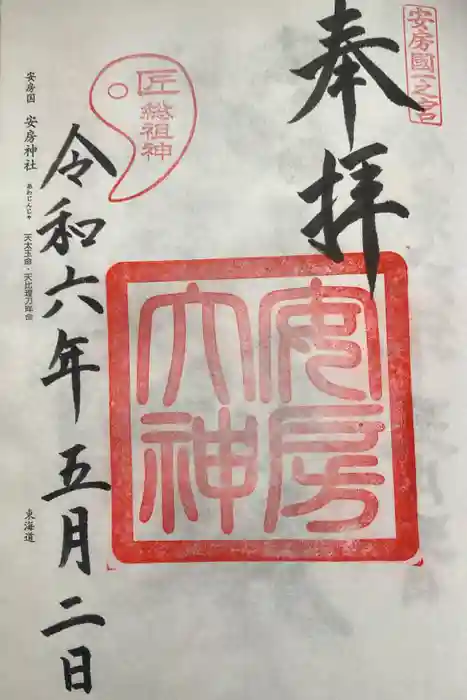 安房國一之宮
奉拝
安房
大神
匠
総祖神
令和六年五月二日
安房国 安房神社
あわじんじゃ
天太玉命・天比理刀咩命
東海道